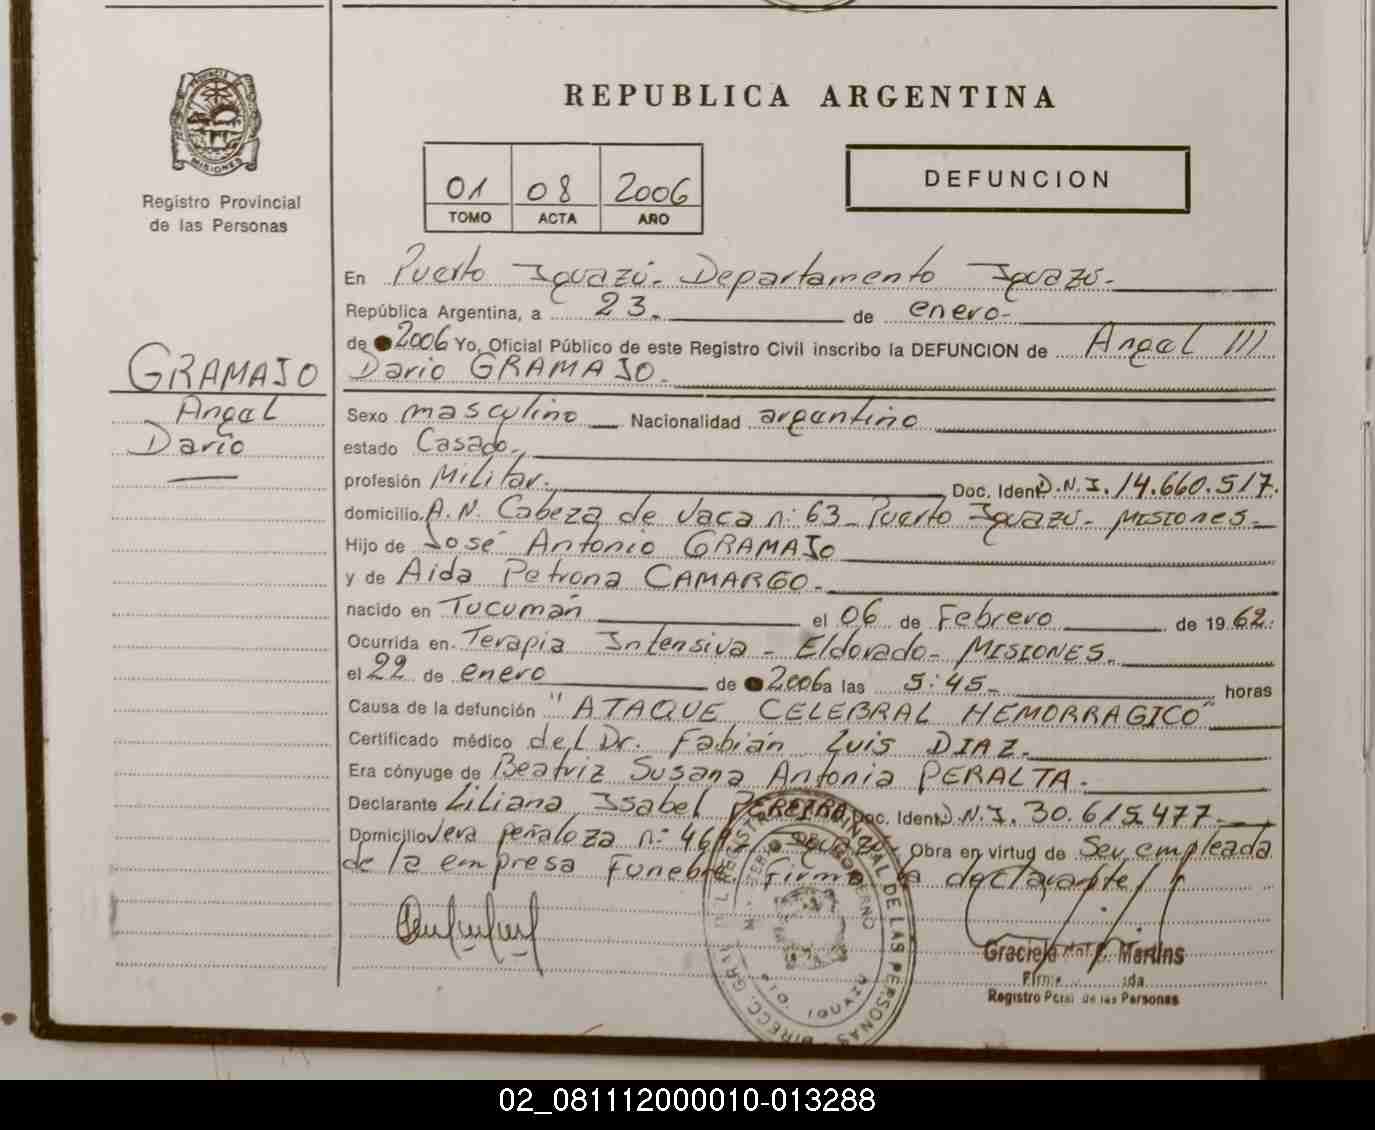 REPUBLICA ARGENTINA
PROVINCIA DE
MISIONES
Registro Provincial
de las Personas
01 08 2006
TOMO ACTA AÑO
DEFUNCION
En Puerto Iguazú. Departamento Iguazú.
República Argentina, a 23. de enero.
de 2006 Yo, Oficial Público de este Registro Civil inscribo la DEFUNCION de Angel ///
Dario GRAMAJO.
GRAMAJO
Angel
Darío
Sexo masculino Nacionalidad argentino
estado Casado.
profesión Militar. Doc. Ident. D.N.I. 14.660.517.
domicilio A.N. Cabeza de Vaca n: 63 - Puerto Iguazú - MISIONES.
Hijo de José Antonio GRAMAJO
y de Aida Petrona CAMARGO.
nacido en Tucumán el 06 de Febrero de 1962.
Ocurrida en Terapia Intensiva - Eldorado - MISIONES.
el 22 de enero de 2006 a las 5:45 horas
Causa de la defunción "ATAQUE CELEBRAL HEMORRAGICO"
Certificado médico del Dr. Fabián Luis DIAZ.
Era cónyuge de Beatriz Susana Antonia PERALTA.
Declarante Liliana Isabel PEREIRA Doc. Ident. D.N.I. 30.615.477.
Domicilio Vera peñaloza n: Iguazú Obra en virtud de Ser empleada
de la empresa Funebre Firma la declarante //
Graciela Martins
Registro Pcial. de las Personas
DE LAS PERSONAS
02_081112000010-013288